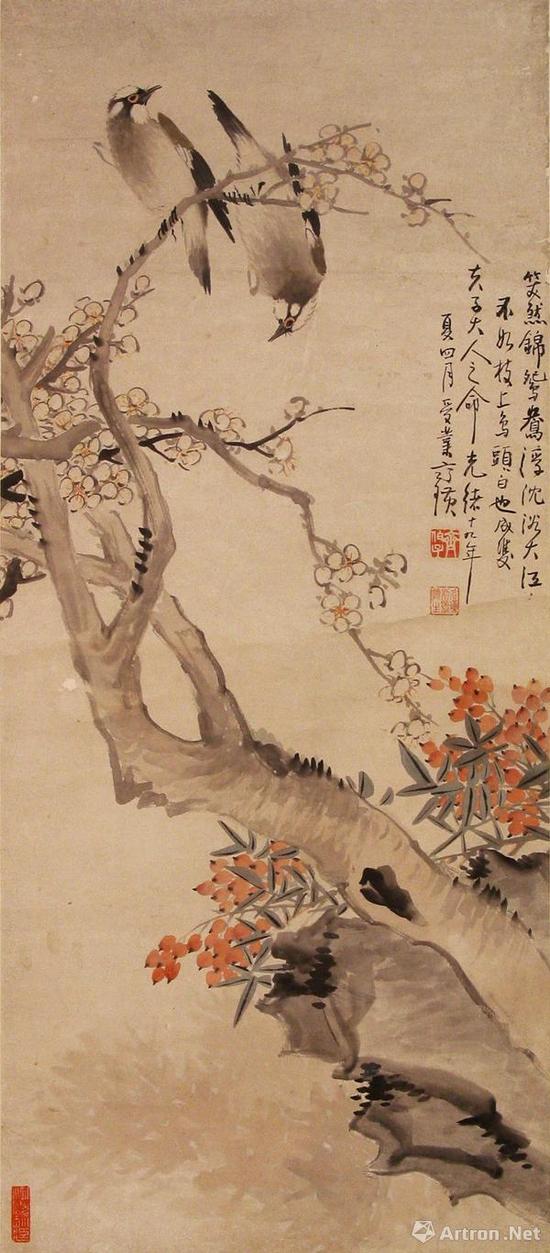 笑煞錦鴛鴦浮沈浴大江
不如枝上鳥頭白也成雙
夫子大人之命光緒十九年
夏四月受業齊璜
Artron.Net